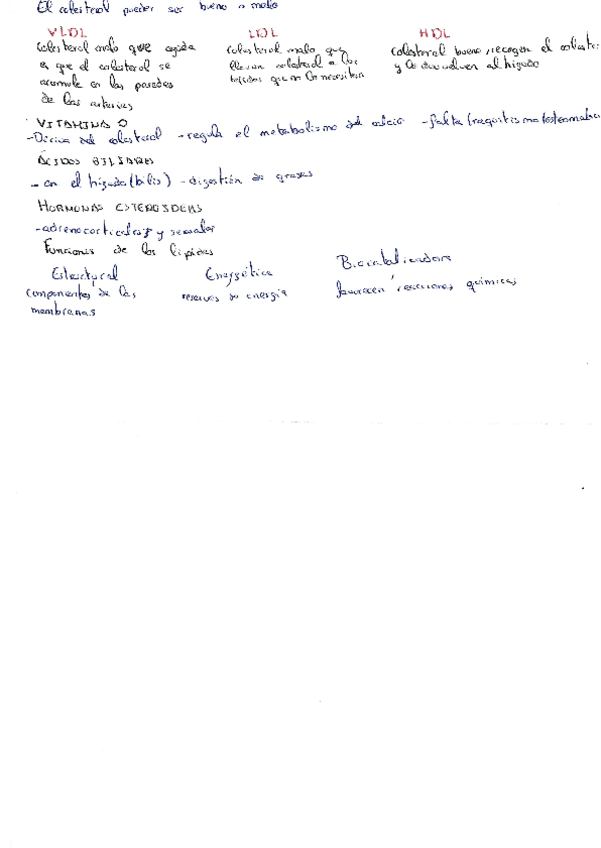 El colesterol pueder ser bueno o malo
VLDL LDL HDL
Colesterol malo que ayuda
a que el colesterol se
acumule en las paredes
de las arterias
Colesterol malo que
llevan colesterol a los
tejidos que no lo necesitan
Colesterol bueno, recogen el
y lo devuelven al hígado
VITAMINA D
-Deriva del colesterol -regula el metabolismo del calcio -falta (raquitismo
ÁCIDOS BILIARES
- en el hígado (bilis) - digestión de grasas
HORMONAS ESTEROIDEAS
-adrenocorticales y sexuales
Funciones de los lípidos
Estructural Energética Biocatalizadora
componentes de las
membranas
reservas de energía
favorecen reacciones químicas